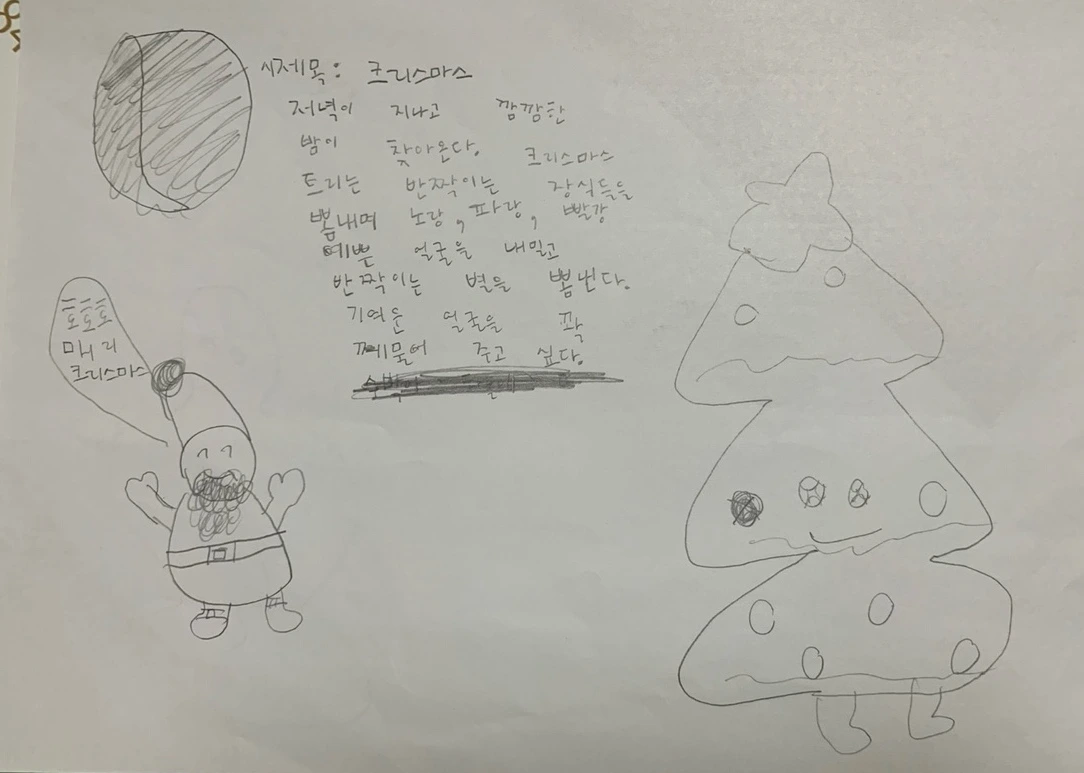 시제목: 크리스마스
저녁이 지나고 깜깜한
밤이 찾아온다. 크리스마스
트리는 반짝이는 장식들을
뽐내며 노랑, 파랑, 빨강
예쁜 얼굴을 내밀고
반짝이는 별을 뽐낸다.
기여운 얼굴을 꽉
께물어 주고 싶다.
호호호
메리
크리스마스